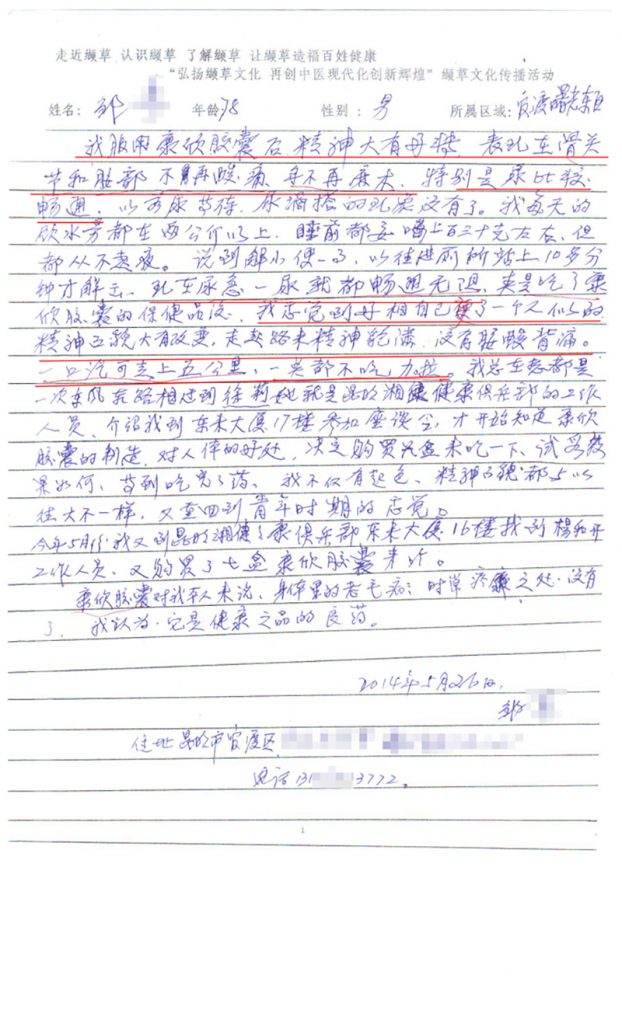 走近缬草 认识缬草 了解缬草 让缬草造福百姓健康
“弘扬缬草文化 再创中医现代化创新辉煌” 缬草文化传播活动
姓名：邹 年龄78 性别：男 所属区域：官渡
我服用康欣胶囊后，精神大有好转，表现在骨关
节和腰部不再酸痛，并不再麻木。特别是尿比较
畅通，以前尿等待、尿滴格的现象没有了。我每天的
饮水方都在两公斤以上，睡前都要喝上百三十克左右，但
都从不起夜。说到解小便一事，以往进厕所站上10多分
钟才解出，现在尿急一尿就都畅通无阻，真是吃了康
欣胶囊的保健品后，我感觉到好相自己变了一个人似的
精神面貌大有改变，走起路来精神轮满，没有腰酸背痛。
一口汽可走上五公里，一英都不吃力拉。我总在想都是
一次东风东路相过到徐莉她就是昆明湘健健康俱乐部的工作
人员，介绍我到东来大厦17楼参加座谈会，才开始知道康欣
胶囊的制造，对人体的好处，决定购买六盒来吃一下、试看效
果如何，等到吃完了药，我不仅有起色、精神面貌都与以
往大不一样，又至回到青年时期的感觉。
今年5月份，我又到昆明湘健健康俱乐部东来大厦16楼找到杨和平
工作人员，又购买了七盒康欣胶囊来吃。
康欣胶囊对我本人来说，身体里的老毛病；时常疼痛之处没有
了，我认为它是健康之品的良药。
2014年5月26日
邹
住地昆明市官渡区
电话13 3772。
1